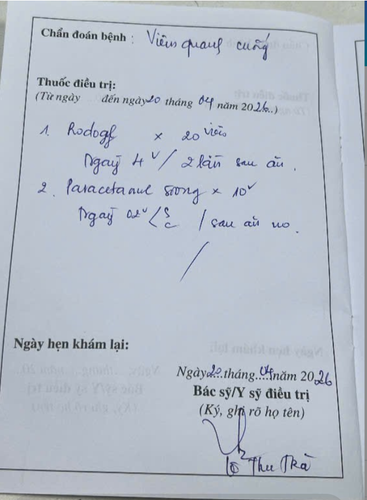 Chẩn đoán bệnh : Viêm quanh cuống
Thuốc điều trị:
(Từ ngày đến ngày 20 tháng 04 năm 2026...)
1. Rodogyl x 20 viên
Ngày 4v / 2 lần sau ăn.
2. Paracetamol 500mg x 10v
Ngày 02v < S C / sau ăn no.
Ngày hẹn khám lại:
Ngày 20 tháng 04 năm 2026
Bác sỹ/Y sỹ điều trị
(Ký, ghi rõ họ tên)
Thu Trà